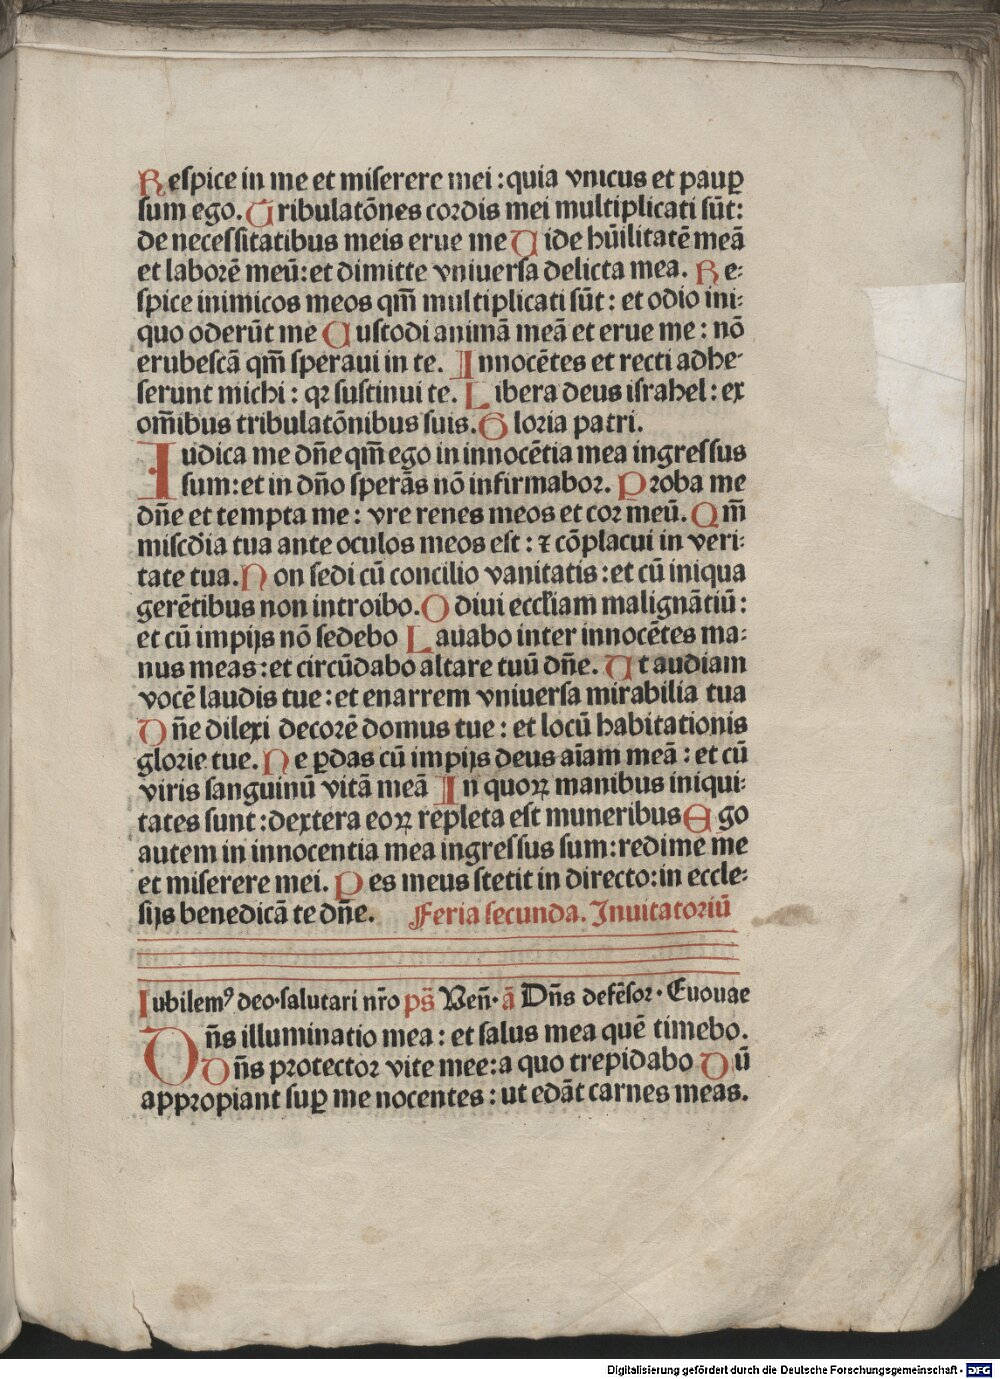 Respice in me et miserere mei : quia vnicus et paup̲
sum ego. Tribulatōnes cordis mei multiplicati sūt:
de necessitatibus meis erue me Uide hūilitatē meā
et laborē meū: et dimitte vniuersa delicta mea. Re-
spice inimicos meos qm̄ multiplicati sūt : et odio ini-
quo oderūt me Custodi animā meā et erue me : nō
erubescā qm̄ speraui in te. Innocētes et recti adhe-
serunt michi : qꝛ sustinui te. Libera deus israhel : ex
om̄ibus tribulatōnibus suis. Gloria patri.
Iudica me dn̄e qm̄ ego in innocētia mea ingressus
sum: et in dn̄o sperās nō infirmabor. Proba me
dn̄e et tempta me : vre renes meos et cor meū. Qm̄
miscd̄ia tua ante oculos meos est : ⁊ cōplacui in veri-
tate tua. Non sedi cū concilio vanitatis : et cū iniqua
gerētibus non introibo. Odiui eccl̄iam malignātiū :
et cū impijs nō sedebo Lauabo inter innocētes ma-
nus meas : et circūdabo altare tuū dn̄e. Ut audiam
vocē laudis tue : et enarrem vniuersa mirabilia tua
Dn̄e dilexi decorē domus tue : et locū habitationis
glorie tue. Ne ꝑdas cū impijs deus aīam meā : et cū
viris sanguinū vitā meā In quoꝝ manibus iniqui-
tates sunt : dextera eoꝝ repleta est muneribus Ego
autem in innocentia mea ingressus sum: redime me
et miserere mei. Pes meus stetit in directo: in eccle-
sijs benedicā te dn̄e. Feria secunda. Inuitatoriū
Iubilemꝰ deo salutari nr̄o ps̄ Ven̄· ā Dn̄s defēsor · Euouae
Dn̄s illuminatio mea : et salus mea quē timebo.
Dn̄s protector vite mee: a quo trepidabo Dū
appropiant suꝑ me nocentes : ut edāt carnes meas.
Digitalisierung gefördert durch die Deutsche Forschungsgemeinschaft - DFG